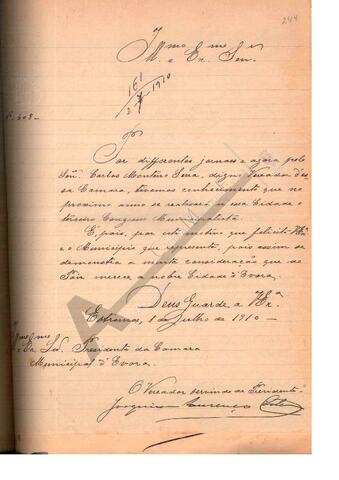 244
Illmo e Exmo Snr.
161
2-7-1910
Por differentes jornaes e agora pelo
Snr. Carlos Monteiro Serra, digno Vereador d'es
sa Camara, tivemos conhecimento que no
proximo anno se realisará n'essa Cidade o
terceiro Congresso Municipalista.
E, pois, por este motivo que felicito V. Exa
e o Municipio que representa, pois assim se
demonstra a muita consideração que de
merece a nobre Cidade d'Evora.
Deus Guarde a V. Exa
Estremoz, 1 de Julho de 1910 —
Illmo e Exmo Snr. Presidente da Camara
Municipal d'Evora.
O Vereador servindo de Presidente
Joaquim Lourenço